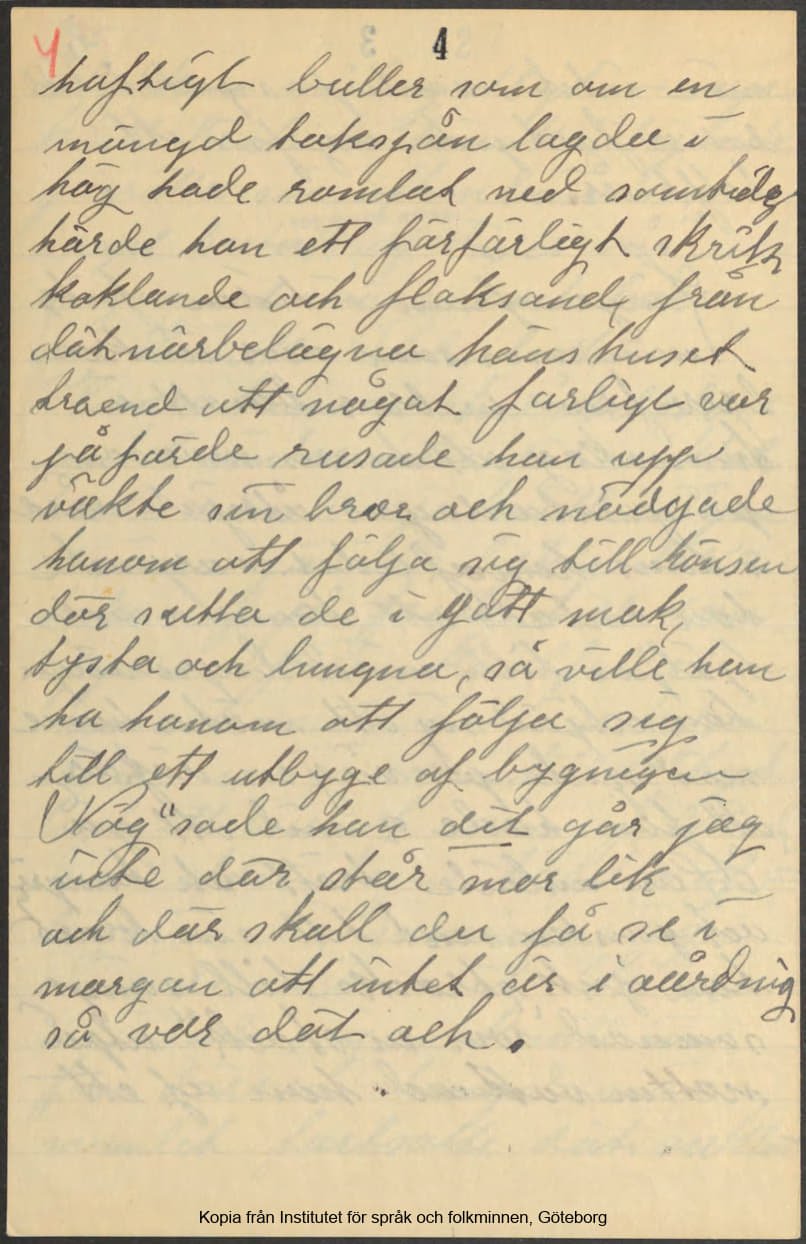 4
4
häftigt buller som om en
mängd takspån lagda i
hög hade ramlat ned samtidig
hörde han ett förfärligt skrik
kaklande och flaksande från
dät närbelägna hönshuset
troend att något farligt var
på färde rusade han upp
väkte sin bror och nödgade
honom att följa sig till hönsen
där sutto de i gått mak,
tysta och lungna, så ville han
ha honom att följa sig
till ett utbyge af bygnigen
Näg" sade han dit går jag
inte där står mor lik
och där skall du få se i
morgan att intet är i oårdnig
så var dät och.
Kopia från Institutet för språk och folkminnen, Göteborg